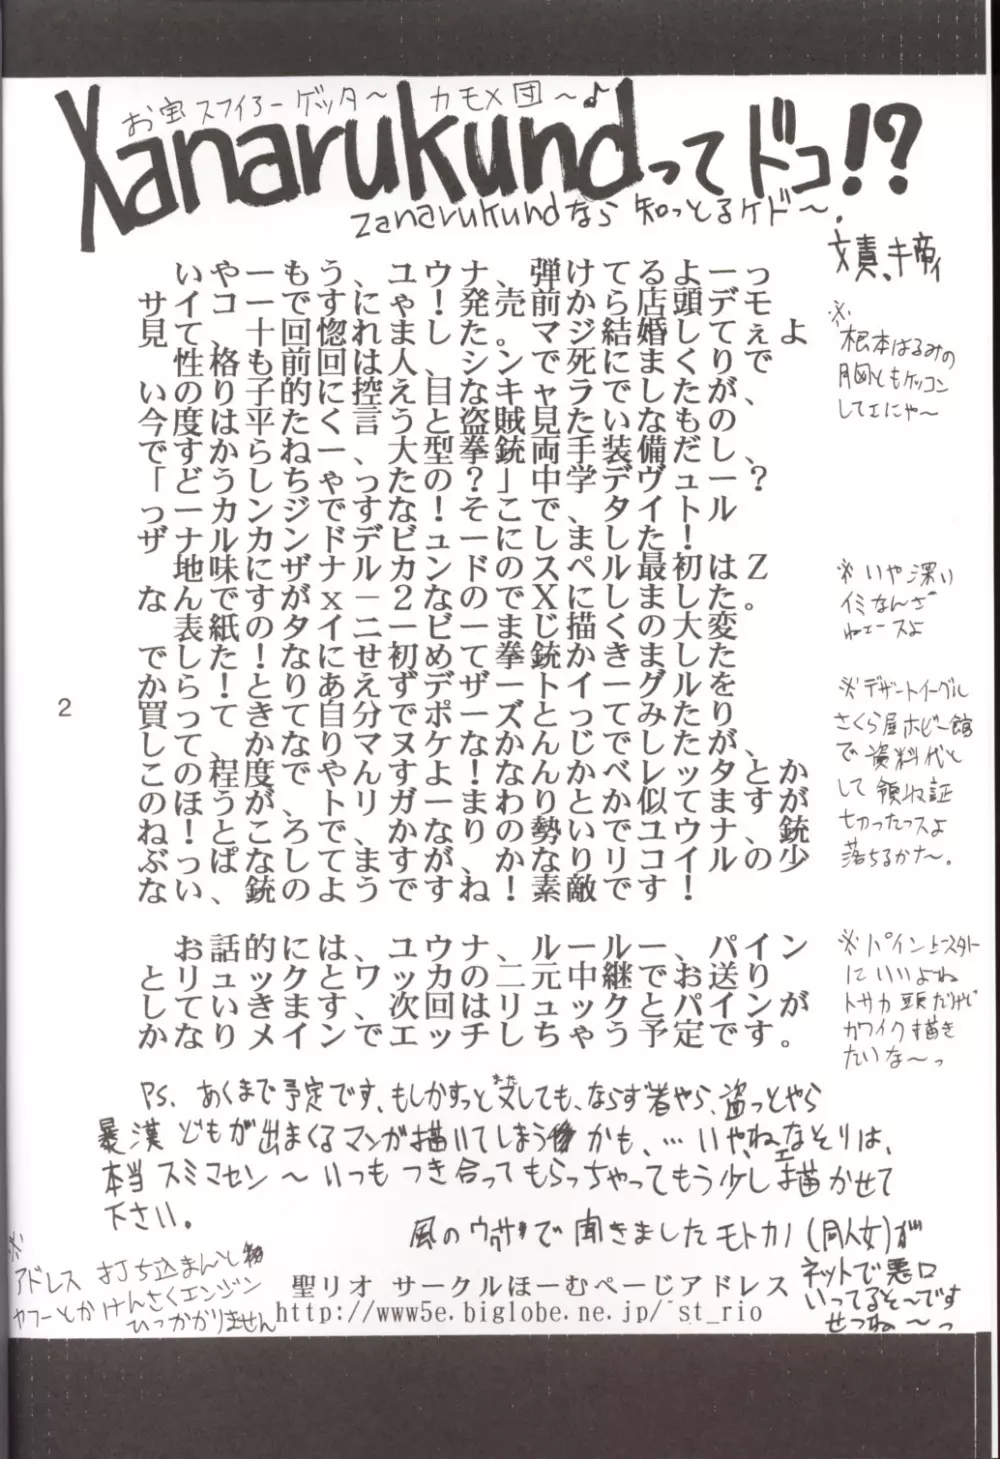 お宝スフィアーゲッタ～ カモメ団～♪
Xanarukundってドコ!?
zanarukundなら知っとるケド～.
いやーもう、ユウナ、弾けてるよーっ
サイコーです、にゃ!発売前から店頭デモ
見て、十回惚れました。マジ結婚してぇよ
性格も前回は人シンで死にまくりで
いのり子的に控え目なキャラでしたが、
今度は平たく言うと盗賊見たいなもの
ですからねーっ、大型拳銃両手装備だし、
「どうしちゃったの?」中学デヴュー?
っーカンジですな!そこで、タイトル
ザナルカンドデビューにしました!
地味にザナルカンドのスペルは最初Z
なんですがx－2なのでXにしました。
表紙のタイニービーまじ描くの大変
でした!なにせ初めて拳銃かきました
からぁ!とりあえずデザートイーグルを
買ってきて自分でポーズとってみたり
して、かなりマヌケなかんじでしたが、
この程度でやんすよ!なんかベレッタとか
のほうが、トリガーまわりとか似てますが
ね!ところで、かなりの勢いでユウナ、銃
ぶっぱなしてますが、かなりリコイルの少
ない、銃のようですね!素敵です!
お話的には、ユウナ、ルールー、パイン
とリュックとワッカの二元中継でお送り
していきます、次回はリュックとパインが
かなりメインでエッチしちゃう予定です。
※根本はるみの
胸ともケッコン
してェにゃ～
※いや深い
イミなんざ
ねェースよ
※デザートイーグル
さくら屋ホビー館
で資料代と
して領収証
切ったっスよ
落ちるかな～。
※パイン
にいいよね
トサカ頭だけど
カワイク描き
たいな～っ
2
Ps. あくまで予定です、もしかすっとまたしても、ならず者やら、盗っとやら
暴漢どもが出まくるマンガ描いてしまうかも、…いやねェなそりは、
本当スミマセン～いつもつき合ってもらっちゃってもう少し描かせて
下さい。
風のウワサで聞きましたモトカノ(同人女)が
ネットで悪口
いってるそ～です
せつね～っ
※
アドレス打ち込まんと
ヤフーとかけんさくエンジン
ひっかかりません
聖リオ サークルほーむぺーじアドレス
http://www5e.biglobe.ne.jp/~st_rio